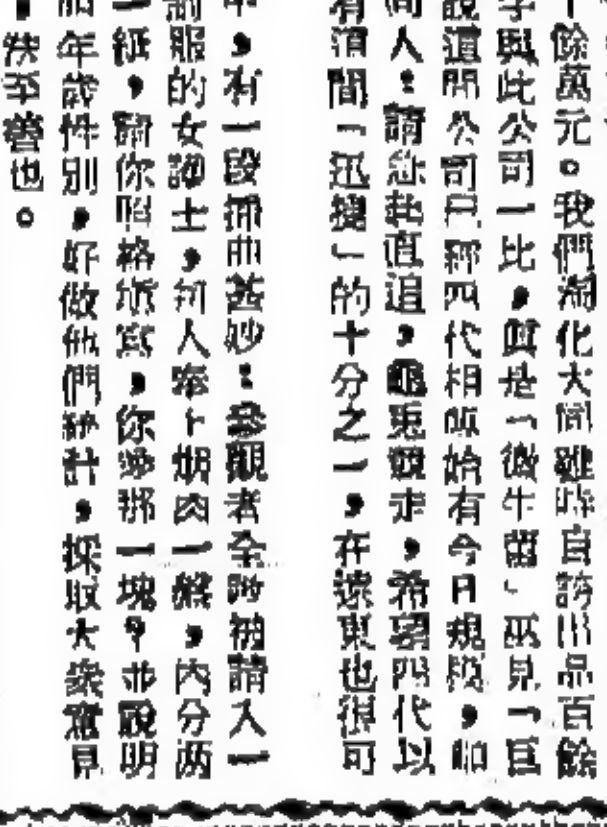 餘萬元。我們淘化大同雖時自誇出品百餘
與此公司一比，真是「微生 」 見「巨
說道間公司已經四代相傳始有今日規模，即
間人：請急起直追，龜兔競走，希望四代以
有須間「迅捷」的十分之一，在遠東也很可
，有一段插曲甚妙：參觀者全 被請入一
制服的女護士，每人奉上烟肉一盤，內分两
一紙，請你照格填寫，你 那一塊？並說明
年歲性別，好做他們統計，採取大衆意見
至善也。